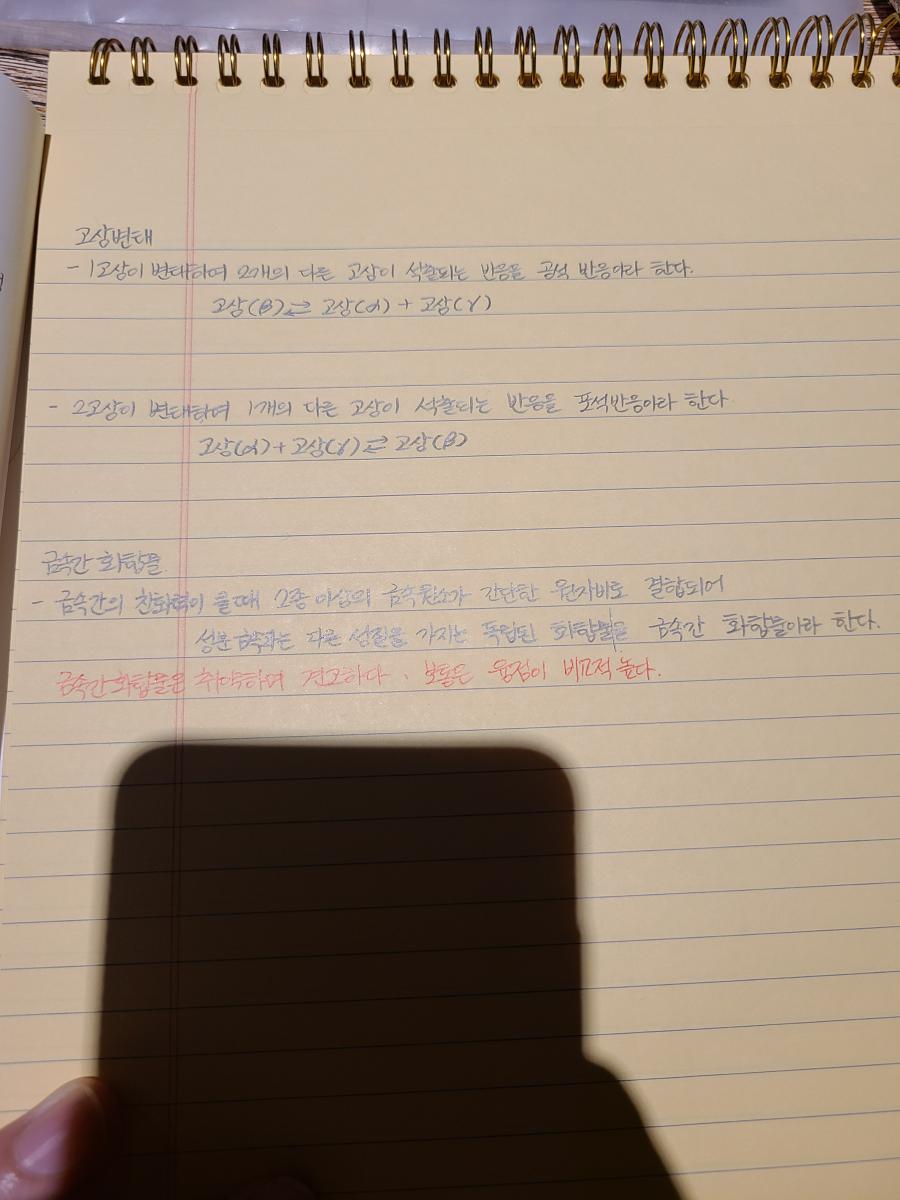 고상변태
- 1고상이 변태하여 2개의 다른 고상이 석출되는 반응을 공석 반응이라 한다.
고상(β) ⇄ 고상(α) + 고상(γ)
- 2고상이 변태하여 1개의 다른 고상이 석출되는 반응을 포석반응이라 한다
고상(α) + 고상(γ) ⇄ 고상(β)
금속간 화합물
- 금속간의 친화력이 클 때 2종 이상의 금속원소가 간단한 원자비로 결합되어
성분 금속과는 다른 성질을 가지는 독립된 화합물을 금속간 화합물이라 한다.
금속간 화합물은 취약하며 견고하다. 보통은 융점이 비교적 높다.